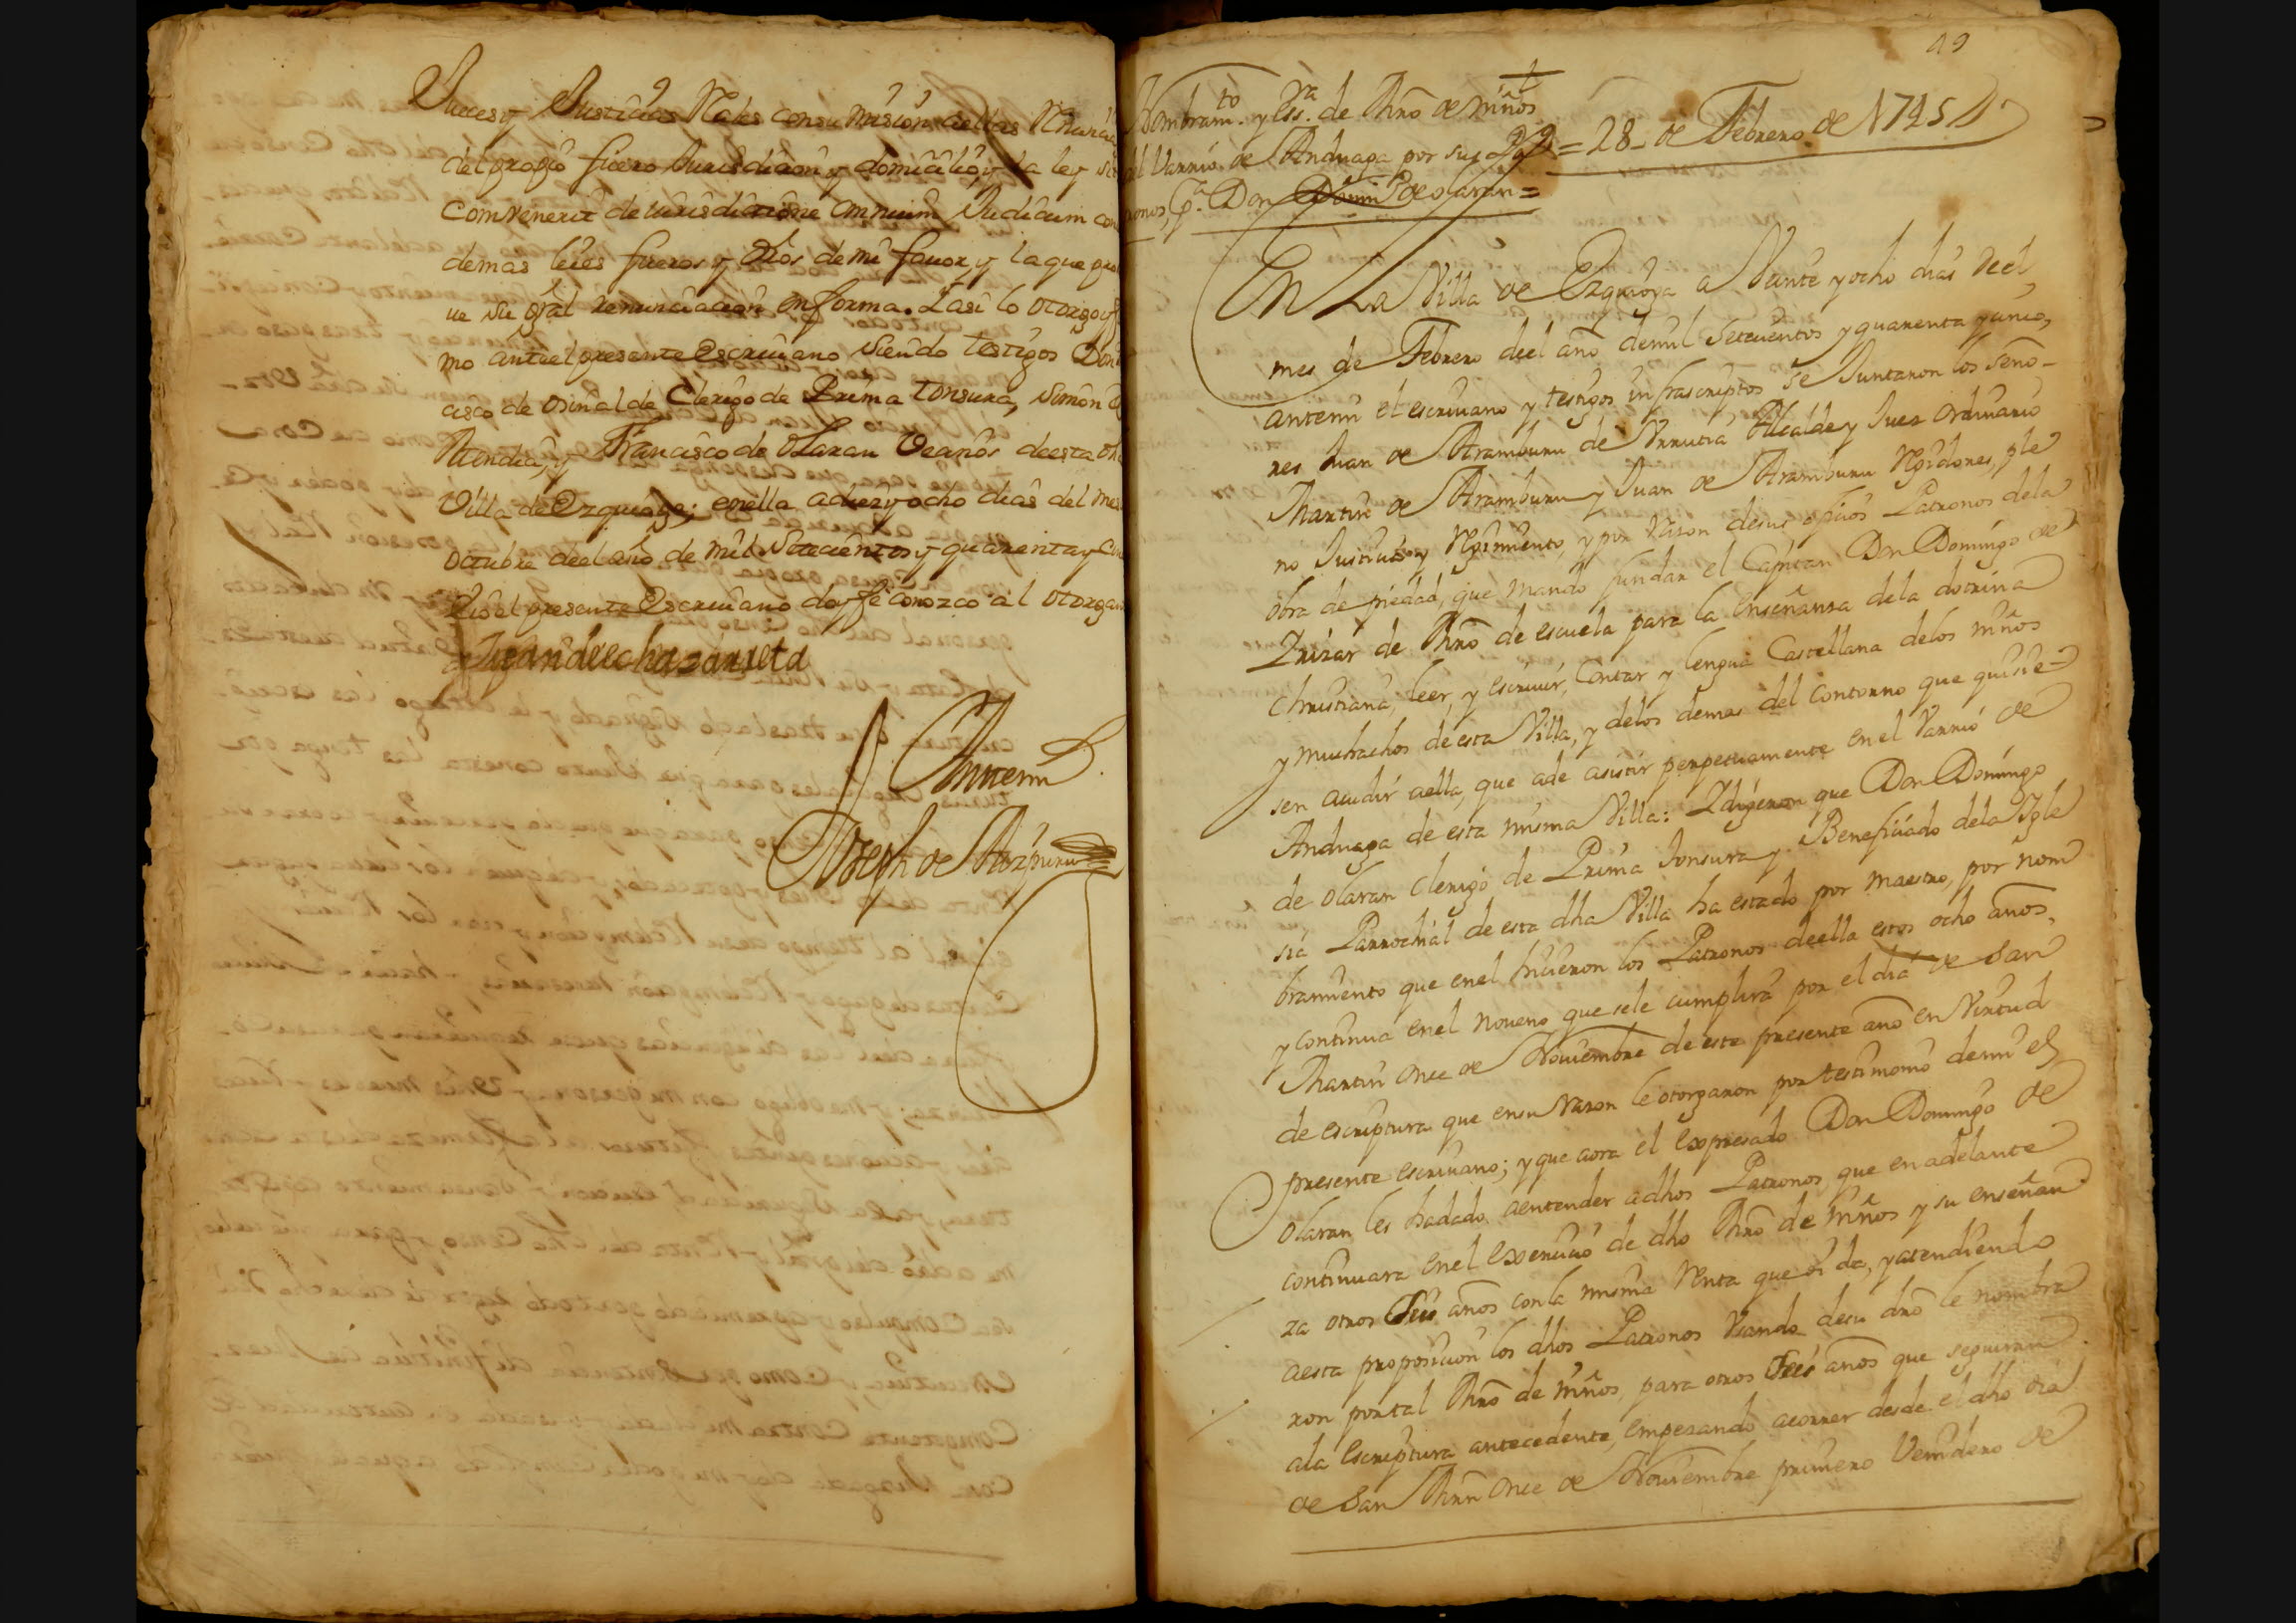 Jueces y Justicias Rales con sumisión a ellas Renuncio
del propio fuero Jurisdicion y domicilio, y la ley sit
combenerit de iurisdictione omnium Judicum con
demas leies fueros y dros de mi favor, y la que pro
ue su gral renunciacion en forma. I asi lo otorgo y fir
mo ante el presente escriuano siendo testigos Don
cisco de osinalde Clerigo de Prima tonsura, Simon de
Francisco de olaran Veçinos de esta dha
Villa de Ezquioga; en ella a diez y ocho dias del mes
octubre de el año de mil setecientos y quarenta y cin
el presente Escriuano doy fe conozco al otorgan
Juan de echazarreta
Antemi
Joseph de Aizpuru
49
Nombramto. y Essra. de Mro de niños
del Varrio de Anduaga por sus = 28 de Febrero de 1745
ronos, pa. Don Domingo de olaran =
En La Villa de Ezquioga a Veinte y ocho dias de el
mes de Febrero de el año de mil setecientos y quarenta y cinco,
antemi el escriuano y testigos infrascriptos se Juntaron los seño-
res Juan de Aramburu de Vrrutia Alcalde y Juez ordinario
Martin de Aramburu y Juan de Aramburu Regidores, ple
no Justicia y Regimiento, y por razon de sus ofiçios Patronos de la
obra de piedad, que mando fundar el Capitan Don Domingo de
Irizar de Mro de escuela para la enseñanza de la dotrina
christiana, leer, y escriuir, Contar y lengua Castellana de los niños
y muchachos de esta Villa, y de los demas del contorno que quisie-
sen acudir a ella, que a de asistir perpetuamente en el Varrio de
Anduaga de esta misma Villa: I digeron que Don Domingo
de olaran Clerigo de Prima tonsura y Benefiçiado de la Igle
sia Parrochial de esta dha Villa ha estado por maestro, por nom
bramiento que en el hiçieron los Patronos de ella estos ocho años,
y continua en el noueno que se le cumplira por el dia de San
Martin once de Nouiembre de este presente año en Virtud
de escriptura que en su razon le otorgaron por testimonio de mi el
presente escriuano; y que aora el expresado Don Domingo de
olaran les ha dado a entender a dhos Patronos, que en adelante
continuara en el exerciçio de dho Mro de niños y su enseñan
za otros seis años con la misma renta que oi da, y atendiendo
a esta proposicion los dhos Patronos Vsando de su dro le nombra
ron por tal Mro de niños, para otros seis años que seguiran
a la escriptura antecedente, empezando a correr desde el dho dia
de San Mrn once de Nouiembre primero Venidero de